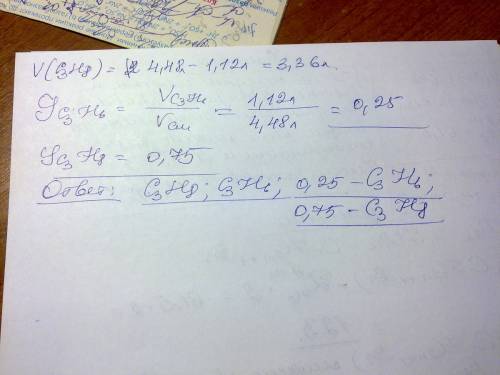 V(C₃H₈) = 4,48л − 1,12л = 3,36л
φ C₃H₆ = V C₃H₆ / V см = 1,12л / 4,48л = 0,25
φ C₃H₈ = 0,75
Ответ: C₃H₈; C₃H₆; 0,25 − C₃H₆;
0,75 − C₃H₈